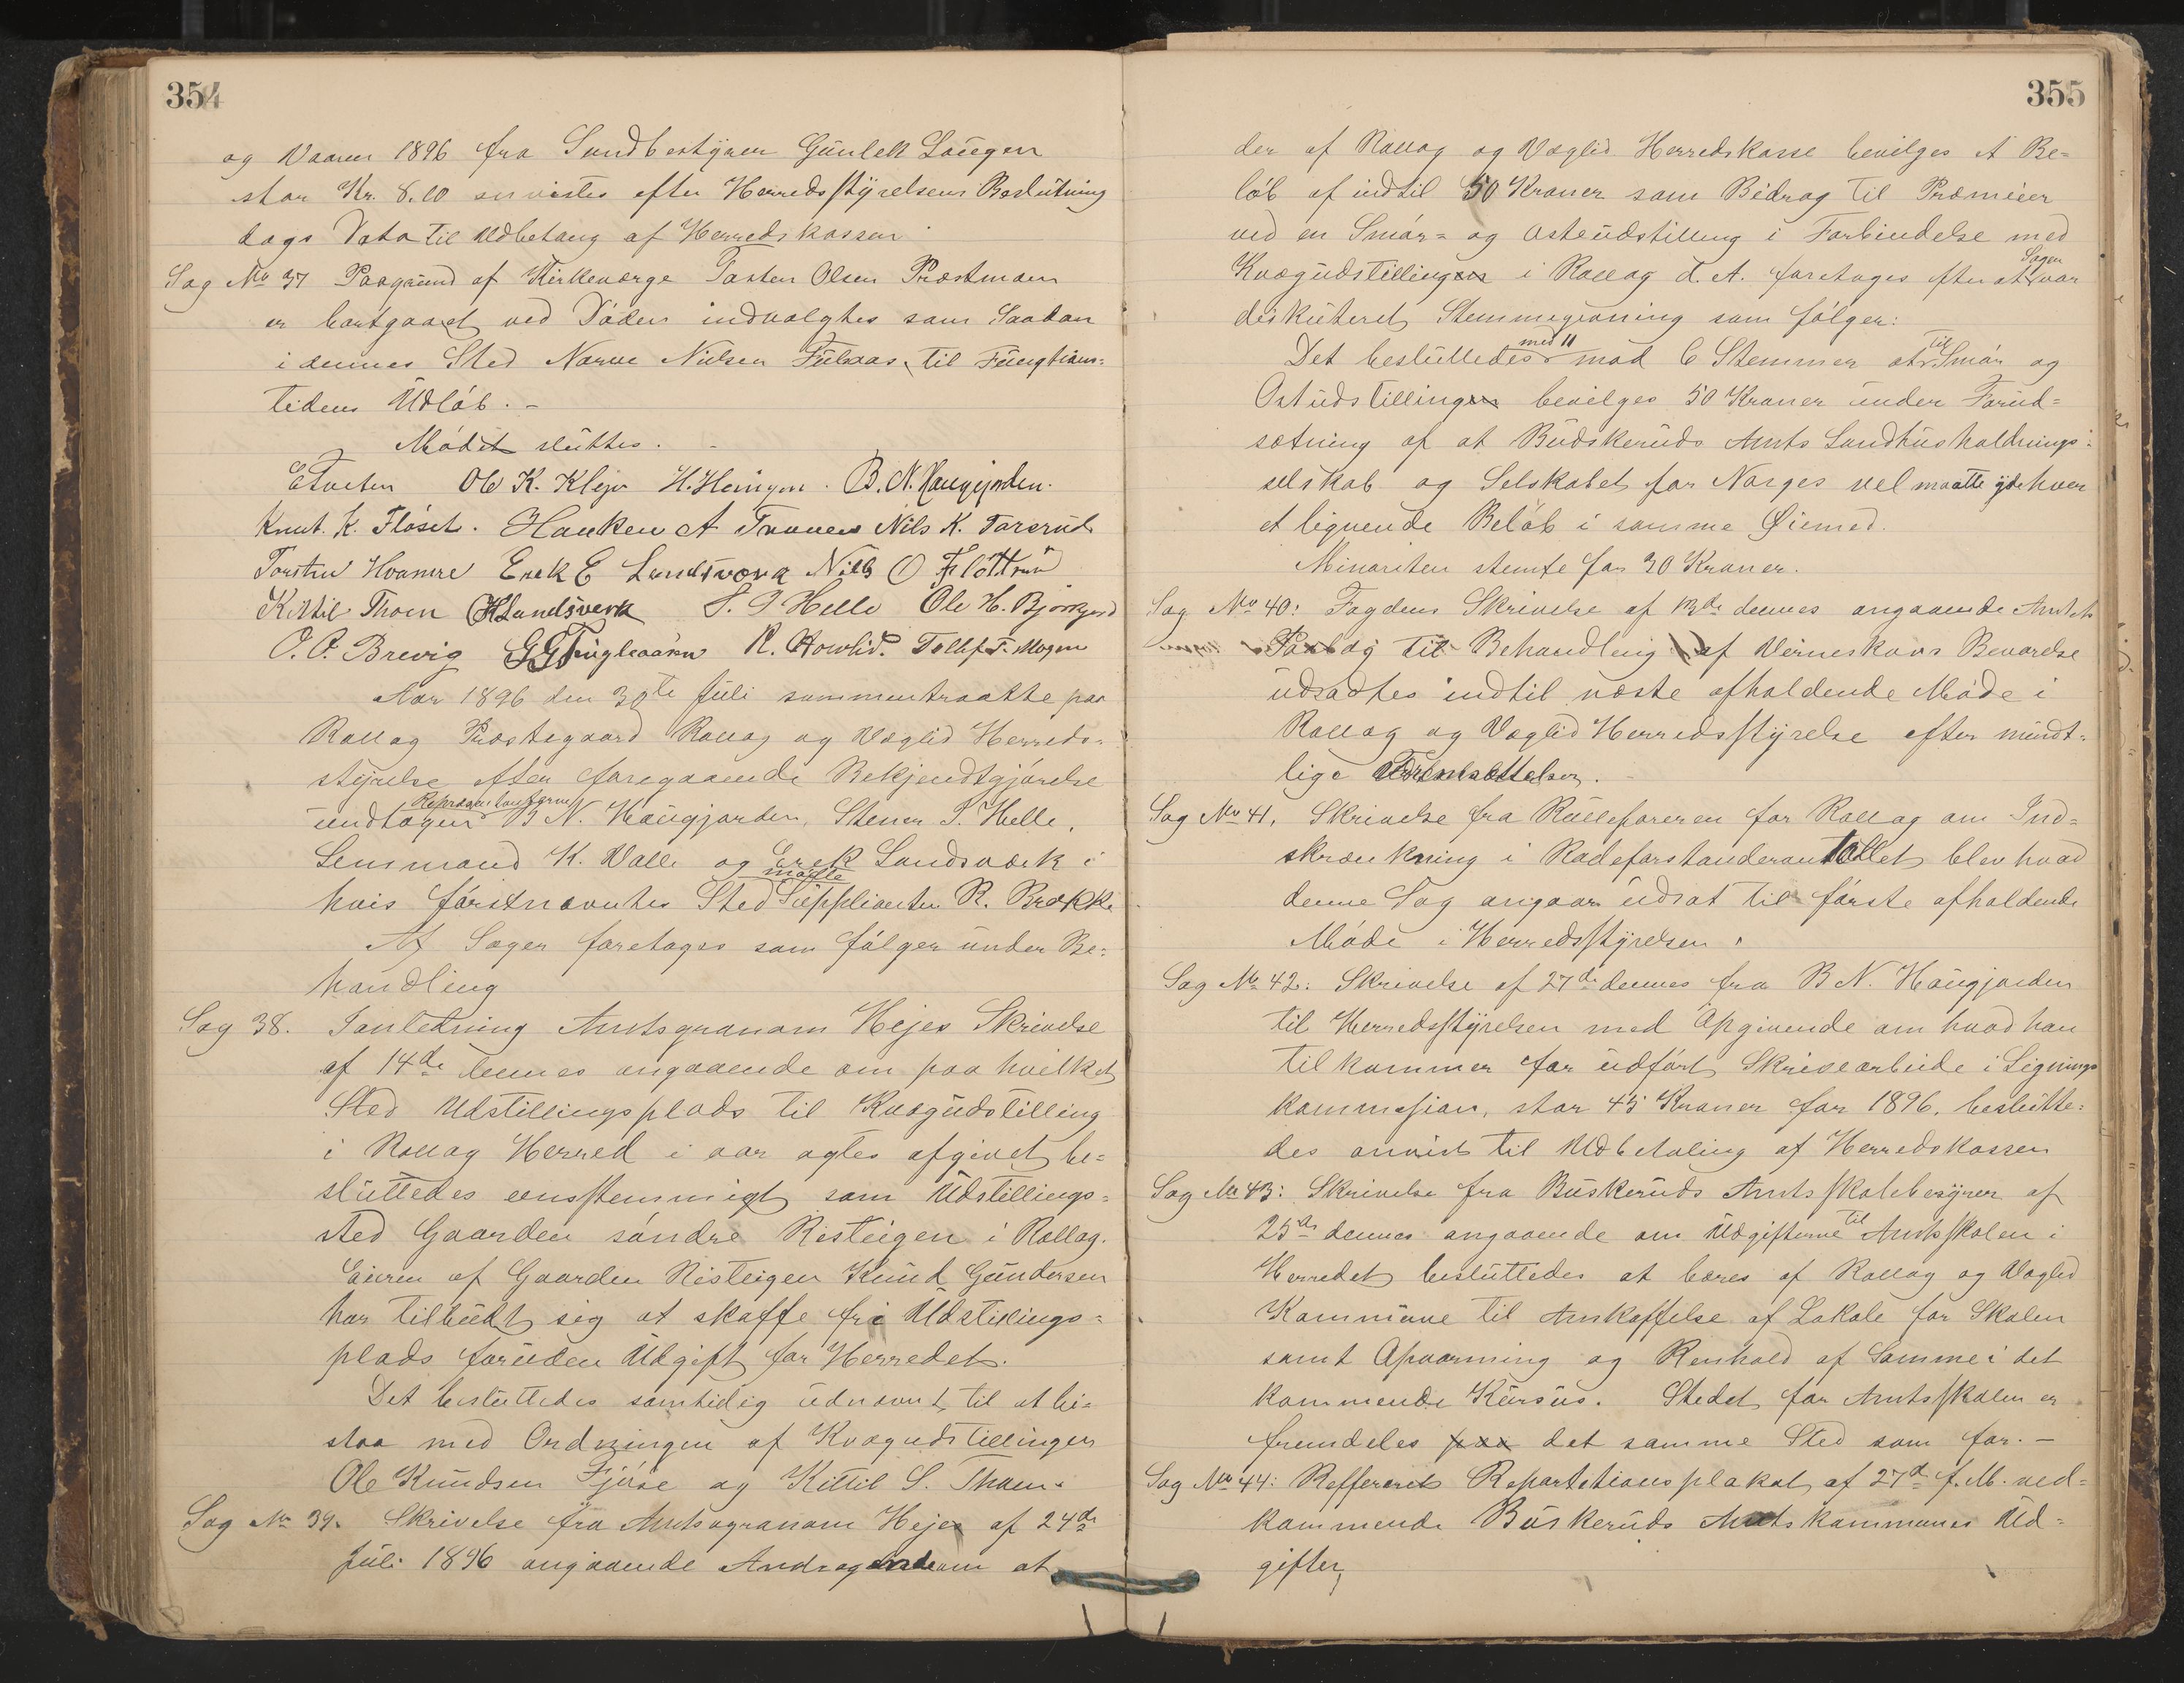 354
og Vaaren 1896 fra Sundbestyrer Gunlek Laugen
stor Kr. 8.10 anvistes efter Herredsstyrelsens Beslutning
dags Dato til Udbetang af Herredskassen
Sag No 37 Paagrund af Kirkeværge Torsten Olsen Præstmoen
er bortgaaet ved Døden indvalgtes som Saadan
i dennes Sted Narve Nilsen til Fungtions=
tidens Udløb. –
Mødet sluttes. –
E Tveten Ole K. Kleje H. Heingen. B. N. Haugjorden.
Knut. K. Fløset. Haaken A Traaen Nils K. Fararud
Torsten Hvamre Erek E Landsværk Nils O Flottrud
Kittil Thoen OHLandsverk S. I Helle Ole H. Bjørkgrd
O. O. Brevig GGTinglvann R. Tollef T. Mogen
Aar 1896 den 30te Juli sammentraatte paa
Rollag Præstegaard Rollag og Væglid Herreds=
styrelse efter foregaaende Bekjendtgjørelse
undtagen Repræsentanterne B N. Haugjorden, Stener I. Helle,
Lensmand K. Valle og Erek Landsværk i
hvis førstnævntes Sted mødte Supplianten R. Brække
Af Sager foretages som følger under Be=
handling
Sag 38. Ianledning Amtsgranom Hejes Skrivelse
af 14de dennes angaaende om paa hvilket
Sted Udstillingsplads til Kvægudstilling
i Rollag Herred i aar agtes afgivet be=
sluttedes eensstemmigt som Udstillings=
sted Gaarden søndre Risteigen i Rollag.
Eieren af Gaarden Risteigen Knud Gundersen
har tilbudt sig at skaffe fri Udstillings=
plads foruden Udgift for Herredet.
Det besluttedes samtidig udnævnt til at bi=
staa med Ordningen af Kvægudstillingen
Ole Knudsen Fjøse og Kittil S. Thoen.
Sag No 39. Skrivelse fra Amtsagranom Heje af 24de
Juli 1896 angaaende Andragende om at
355
der af Rollag og Væglid Herredskasse bevilges et Be=
løb af indtil 50 Kroner som Bidrag til Præmier
ved en Smør= og Osteudstilling i Forbindelse med
Kvægudstillingen i Rollag d. A. foretages efter at Sagen var
diskuteret Stemmegivning som følger:
Det besluttedes med 11 mod 6 Stemmer at til Smør og
Ostudstillingen bevilges 50 Kroner under Forud=
sætning af at Budskeruds Amts Landhusholdnings=
selskab og Selskabet for Norges vel maatte yde hver
et lignende Beløb i samme Øiemed.
Minoriten stemte for 30 Kroner.
Sag No 40: Fogdens Skrivelse af 13de dennes angaaende Amtets
Forslag til Behandling af Verneskovs Bevarelse
udsadtes indtil næste afholdende Møde i
Rollag og Væglid Herredsstyrelse efter mundt=
lige
Sag No 41, Skrivelse fra Rulleføreren for Rollag om Ind=
skrænkning i Rodeforstanderantallet blev hvad
denne Sag angaar udsat til første afholdende
Møde i Herredsstyrelsen.
Sag No 42: Skrivelse af 27de dennes fra B N. Haugjorden
til Herredsstyrelsen med Opgivende om hvad han
tilkommer for udført Skrivearbeide i Lignings
kommesion, stor 45 Kroner for 1896. beslutte=
des anvist til Udbetaling af Herredskassen
Sag No 43: Skrivelse fra Buskeruds Amts skolebesyrer af
25de dennes angaaende om Udgifterne til Amtsskolen i
Herredet besluttedes at bæres af Rollag og Vaglid
Kommune til Anskaffelse af Lokale for Skolen
samt Opvarming og Renhold af Samme i det
kommende Kursus. Stedet for Amtsskolen er
fremdeles paa det samme Sted som før. –
Sag No 44: Reffereret Repartetionsplakat af 27d f. M. ved=
kommende Buskeruds Amtskommunes Ud=
gifter,